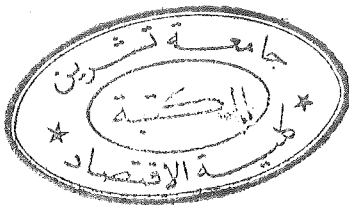 جامعة تشرين
المكتبة
كلية الاقتصاد